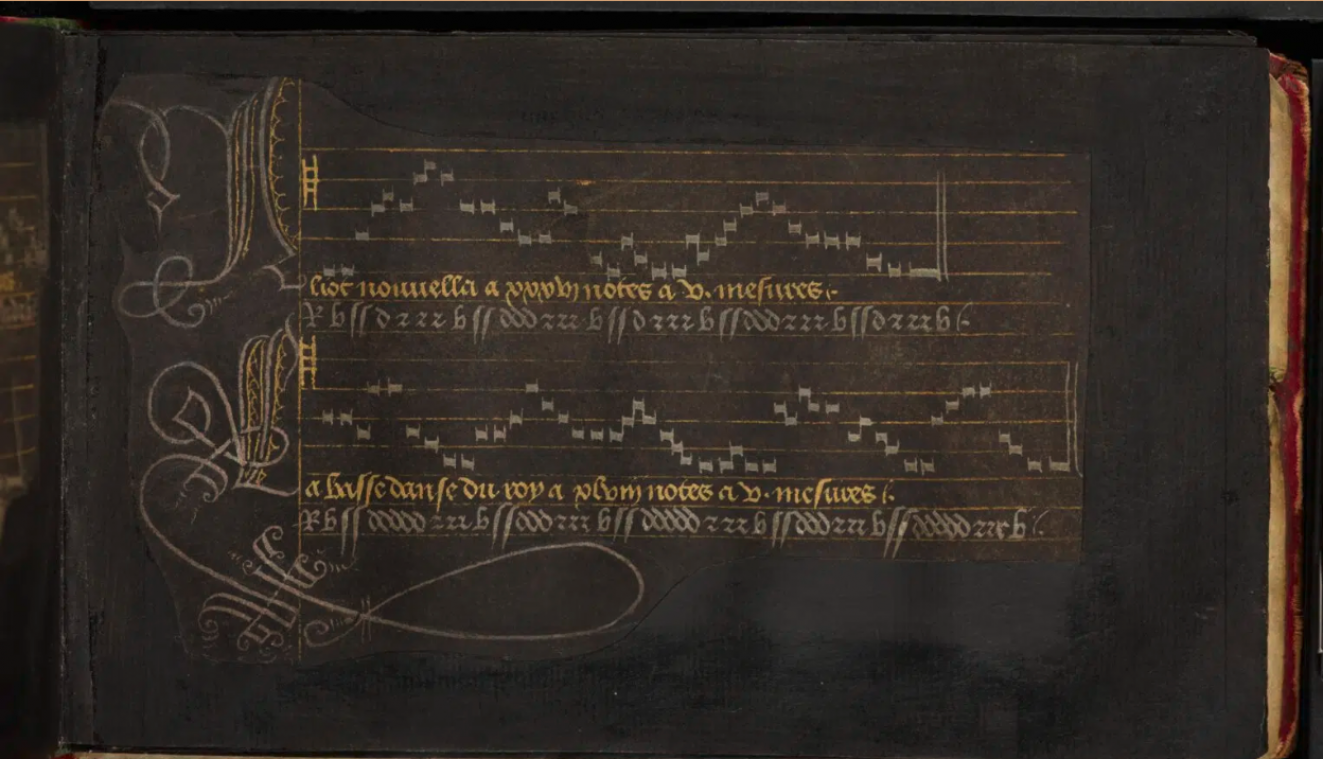 Aliot nouuella a xxxvi notes a v. mesures.
R b ss d r r r b ss ddd r r r b ss d r r r b ss ddd r r r b ss d r r r b
La basse danse du roy a xlviii notes a v. mesures.
R b ss ddddd r r r b ss ddd r r r b ss ddddd r r r b ss ddd r r r b ss ddddd r r r b